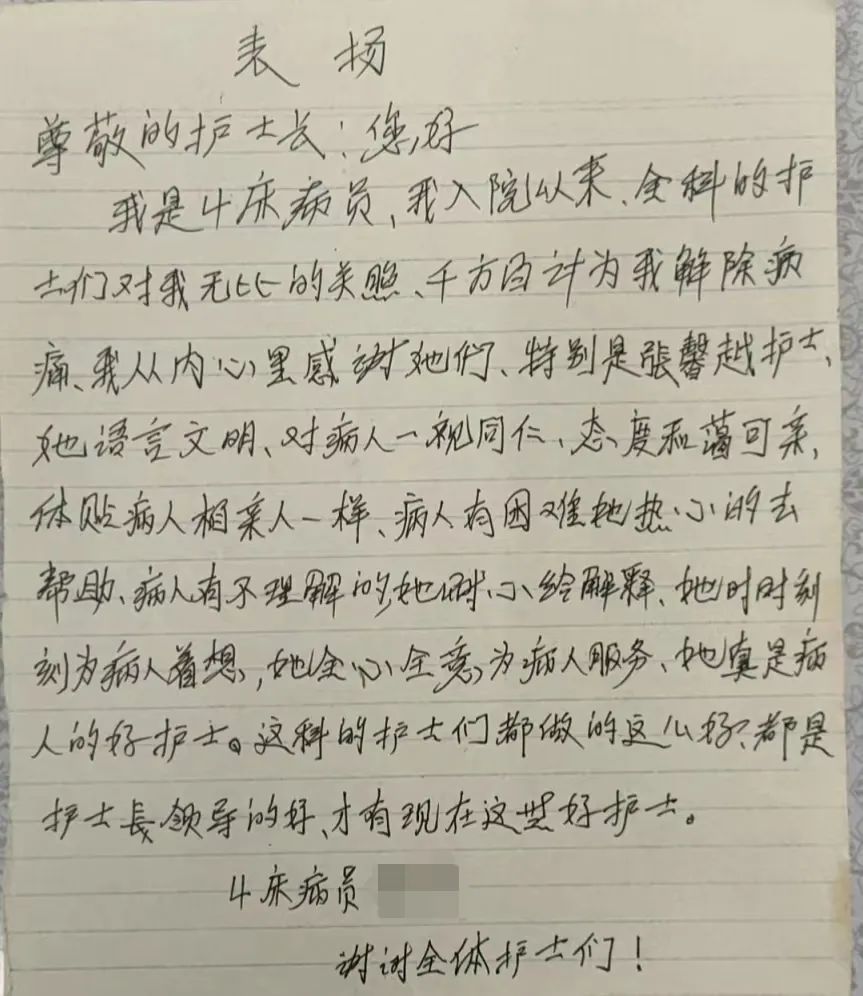 表扬
尊敬的护士长：您好
我是4床病员，我入院以来、全科的护
士们对我无比的关照、千方百计为我解除病
痛、我从内心里感谢她们、特别是張馨越护士、
她语言文明、对病人一视同仁、态度和蔼可亲，
体贴病人相亲人一样、病人有困难她热心的去
帮助、病人有不理解的,她耐心给解释、她时时刻
刻为病人着想，她全心全意为病人服务、她真是病
人的好护士。这科的护士们都做的这么好、都是
护士長领导的好、才有现在这些好护士。
4床病员
谢谢全体护士们！